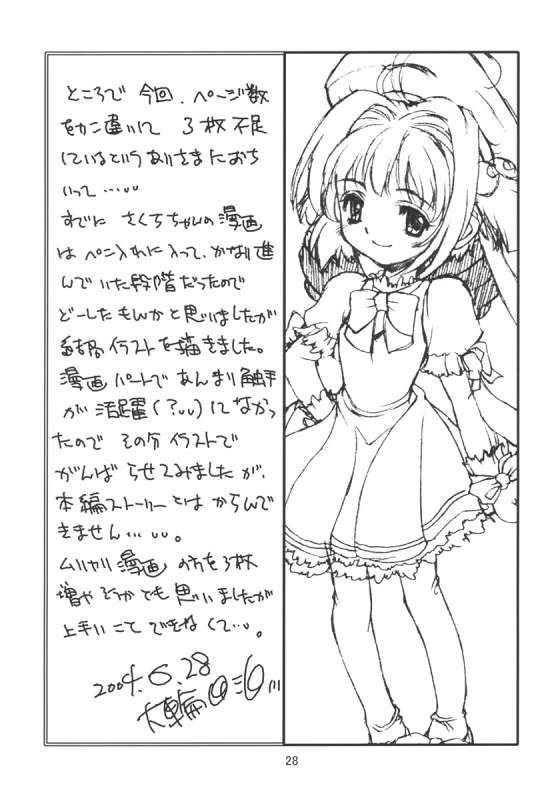 ところで 今回、ページ数
をカン違いして 3枚不足
しているというありさまにおち
いって…
すでに さくらちゃんの漫画
は ペン入れに入って、かなり進
んでいた段階だったので
どーしたもんかと思いましたが
結局イラストを描きました。
漫画パートであんまり触手
が活躍(?)しなかっ
たので その分イラストで
がんばらせてみましたが、
本編ストーリーとは からんで
きません…。
ムリヤリ漫画の方を3枚
増やそうかとも思いましたが
上手いこと できなくて…。
2004.6.28
28